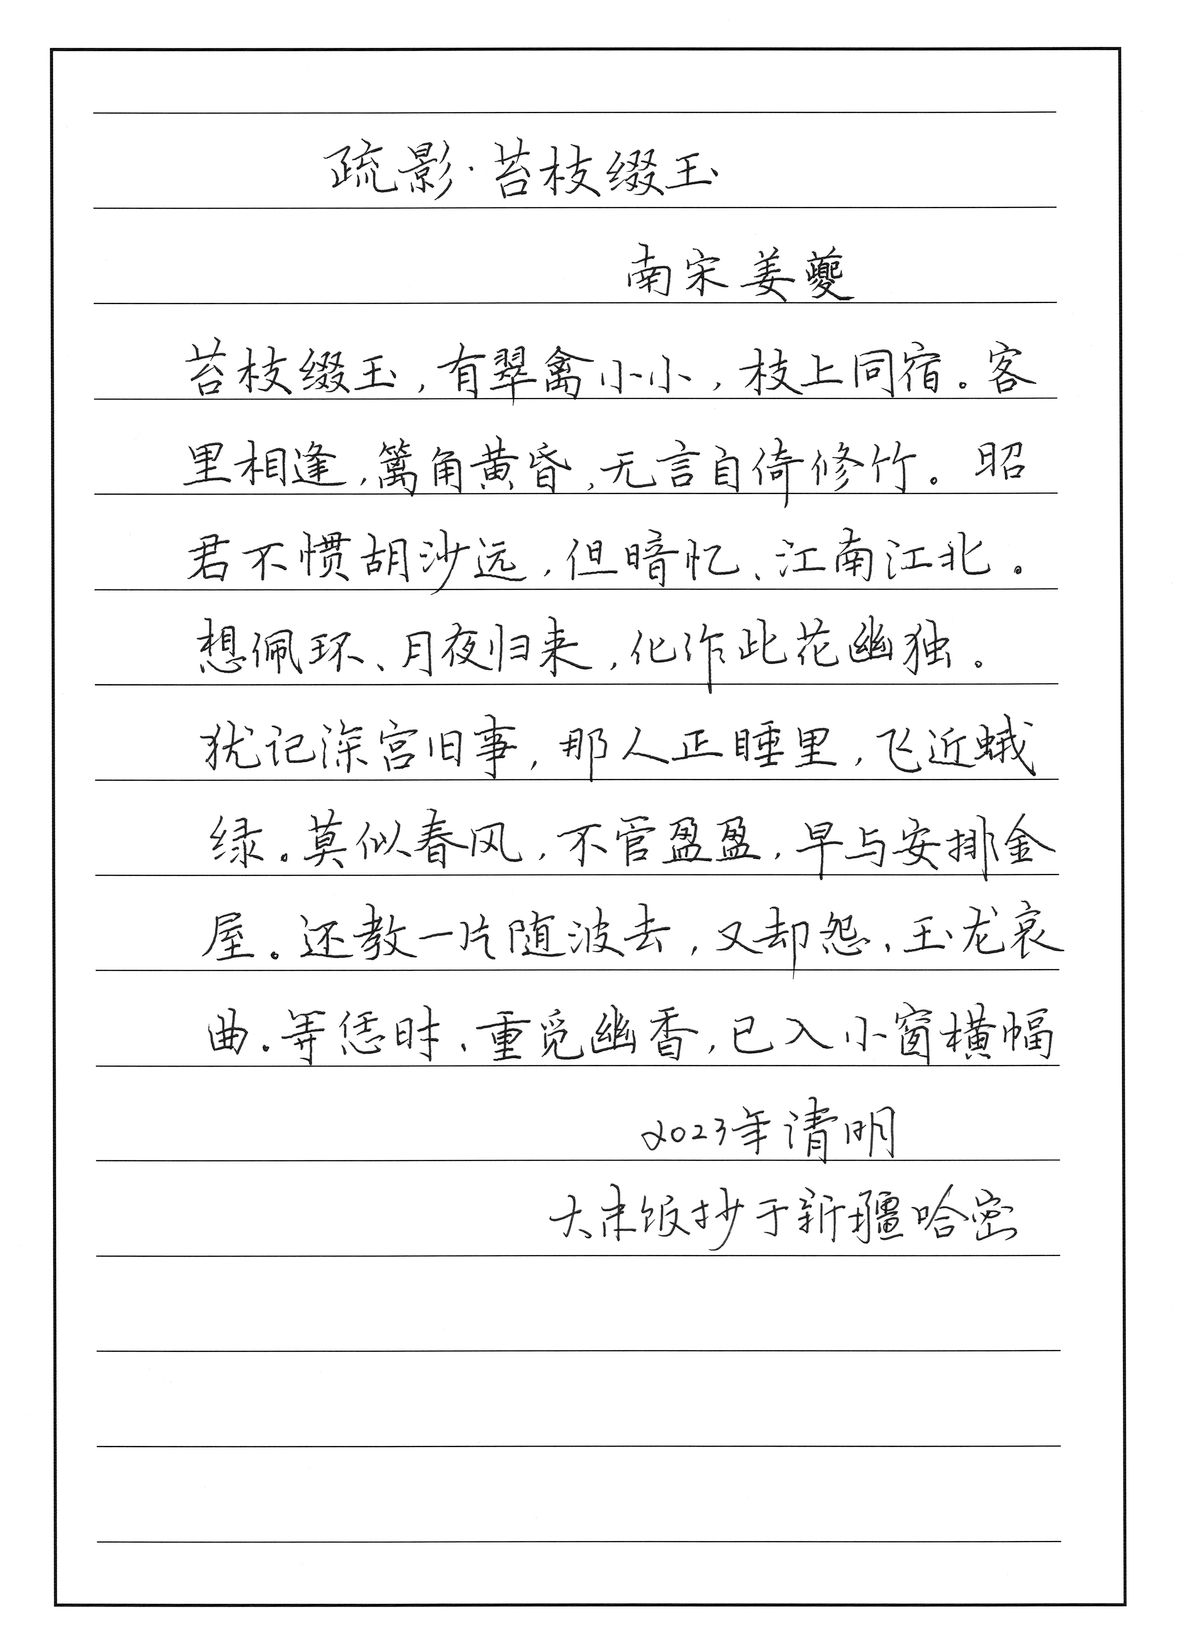 疏影·苔枝缀玉
南宋 姜夔
苔枝缀玉，有翠禽小小，枝上同宿。客
里相逢，篱角黄昏，无言自倚修竹。昭
君不惯胡沙远，但暗忆、江南江北。
想佩环、月夜归来，化作此花幽独。
犹记深宫旧事，那人正睡里，飞近蛾
绿。莫似春风，不管盈盈，早与安排金
屋。还教一片随波去，又却怨、玉龙哀
曲。等恁时、重觅幽香，已入小窗横幅
2023年清明
大米饭抄于新疆哈密